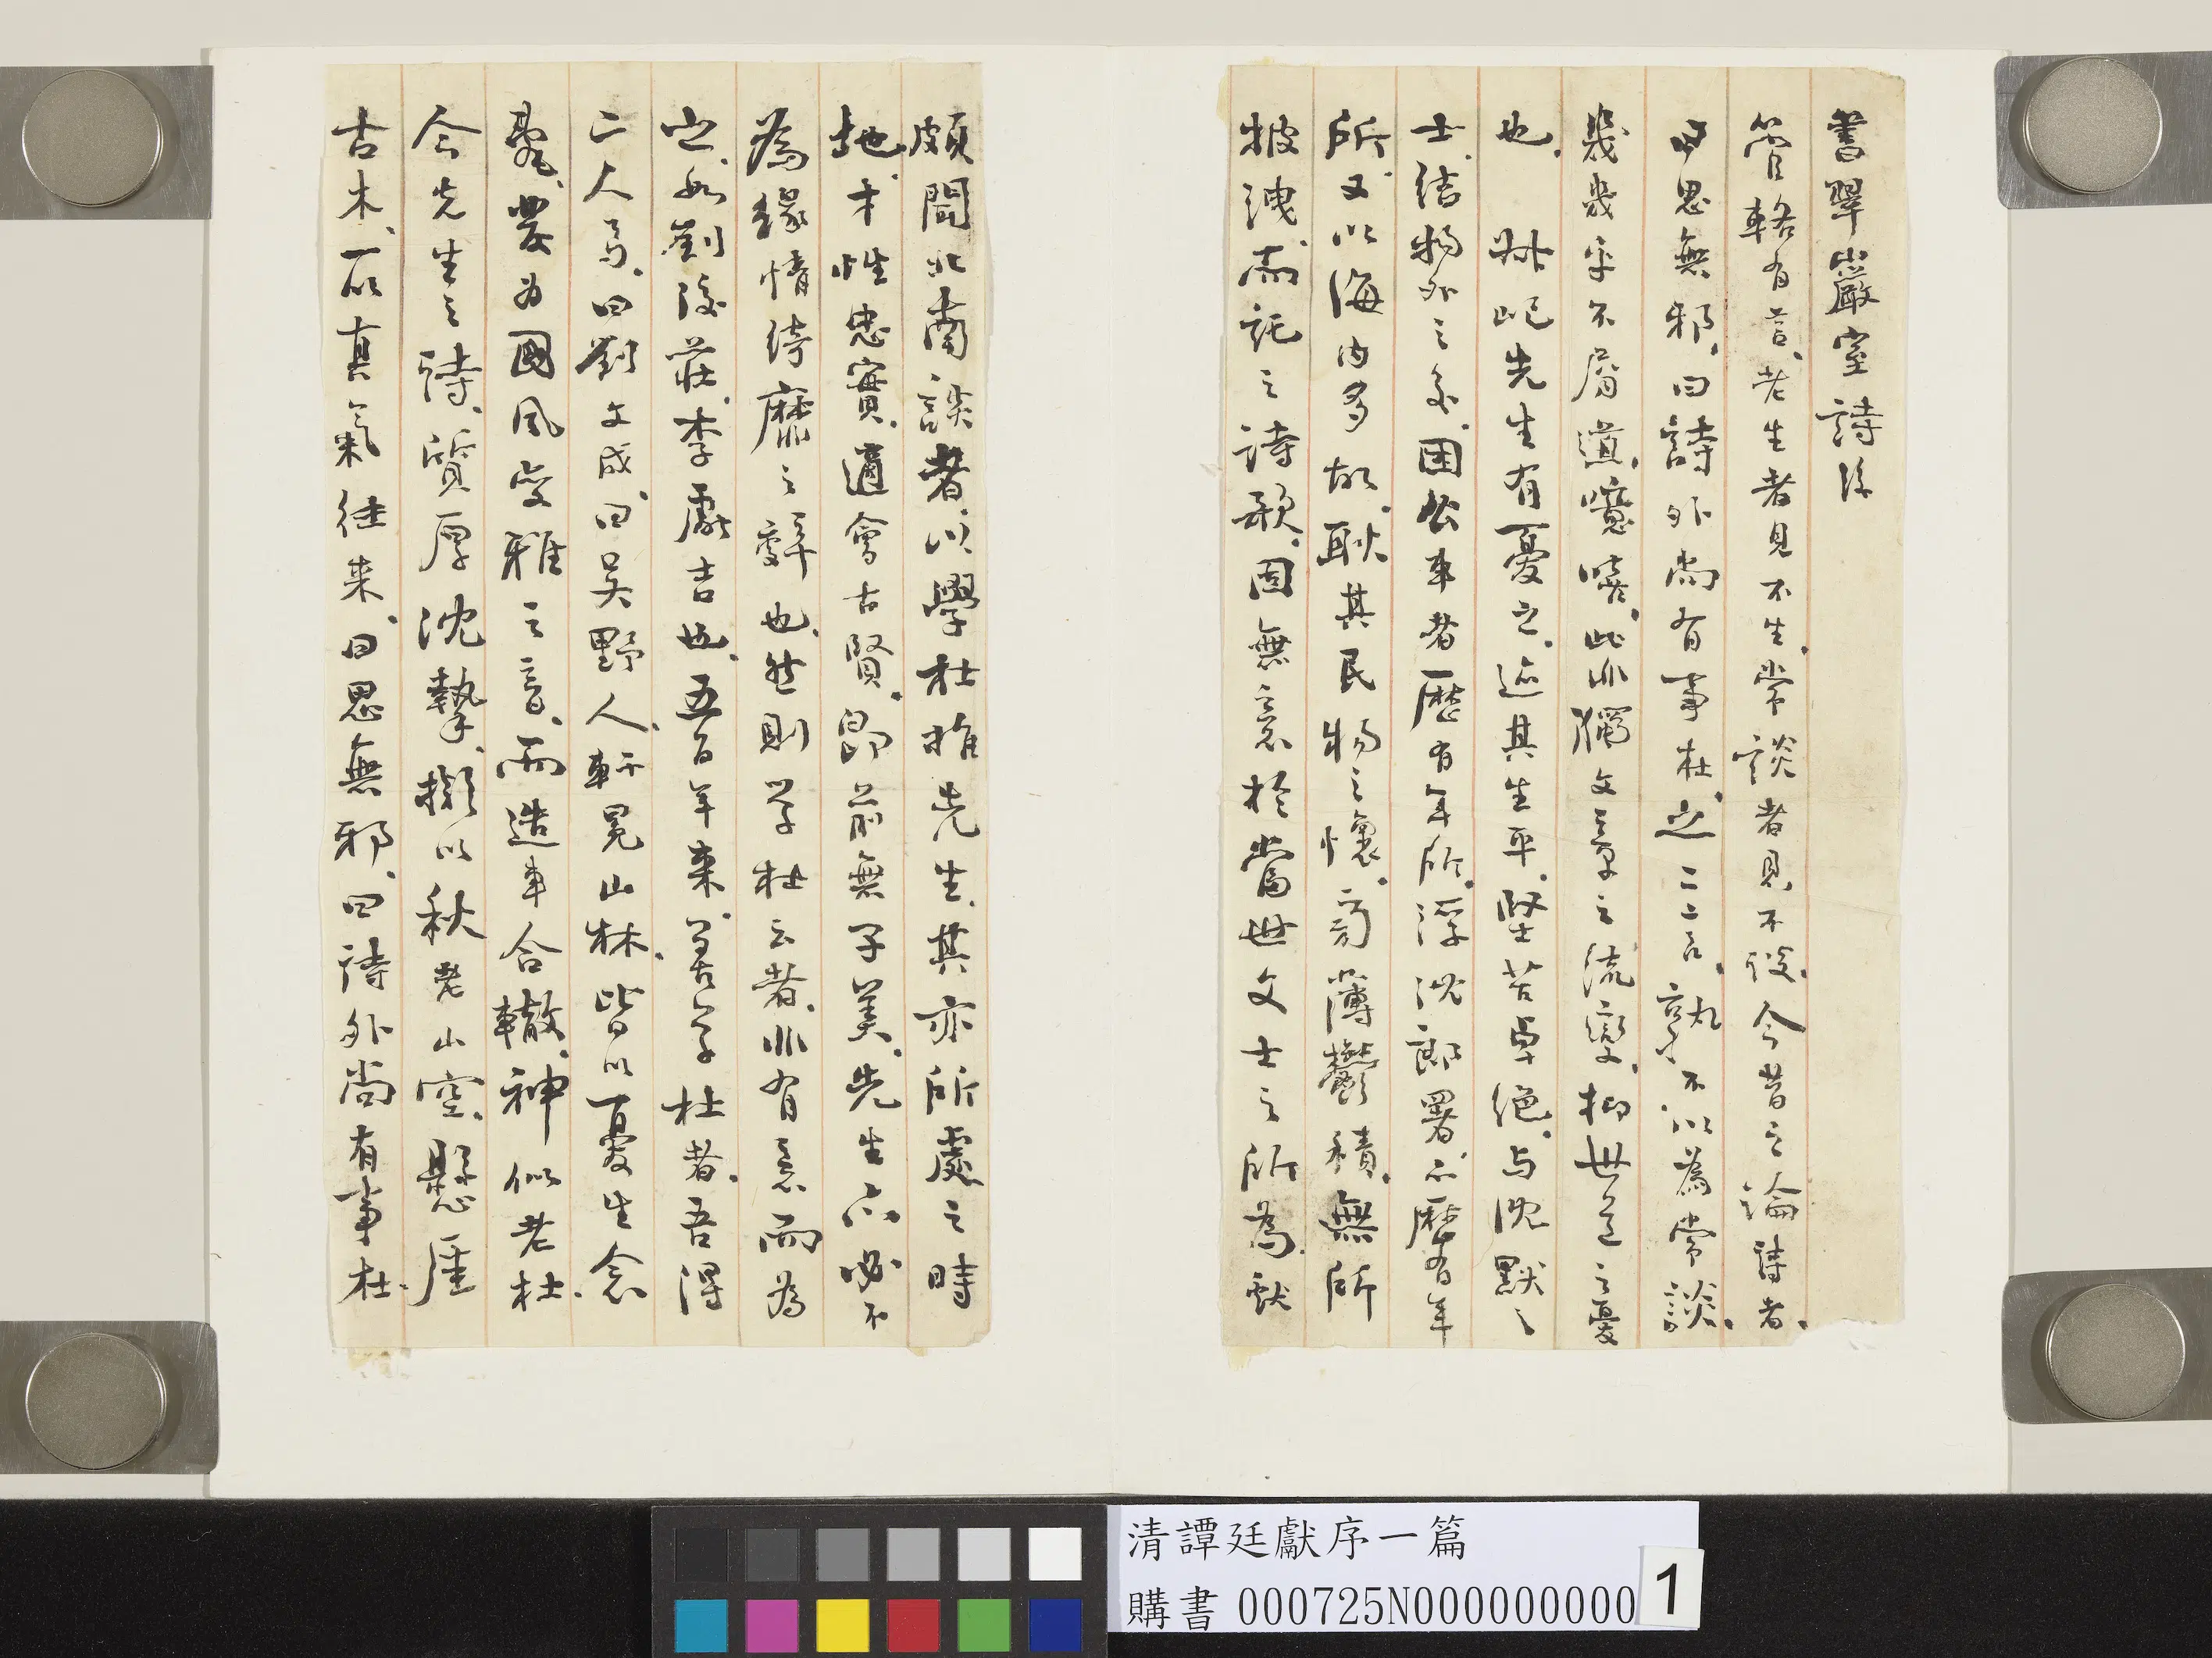 書翠巖室詩後
管輅有言老生者見不生常談者見不談今昔之論詩者
曰思無邪曰詩外尚有事在之二言孰不以為常談
幾幾乎不屑道噫嘻此非獨文章之流變抑世道之憂
也叔起先生有憂之迹其生平堅苦卓絕与沈默之
士結物外之交困公車者歷有年所浮沈郎署亦歷有年
所又以海內多故耿其民物之懷旁薄鬱積無所
披洩而託之詩歌固無意於當世文士之所為獻
頗聞北南談者以學杜推先生其亦所處之時
地才性忠實適會古賢即前無子美先生亦必不
為緣情綺靡之辭也然則学杜云者非有意而為
之如劉後莊李獻吉也五百年來善学杜者吾得
二人焉曰劉文成曰吴野人軒冕山林皆以憂生念
亂要為國風变雅之音而造車合轍神似老杜
今先生之詩質厚沈摯擬以秋老山空懸厓
古木一以真氣往來曰思無邪曰詩外尚有事在
清譚廷獻序一篇
購書 000725N000000000 1